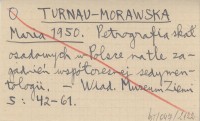 TURNAU-MORAWSKA
Maria 1950. Petrografia skał
osadowych w Polsce na tle za-
gadnień współczesnej sedymen-
tologii. – Wiad. Muzeum Ziemi
5 : 42-61.